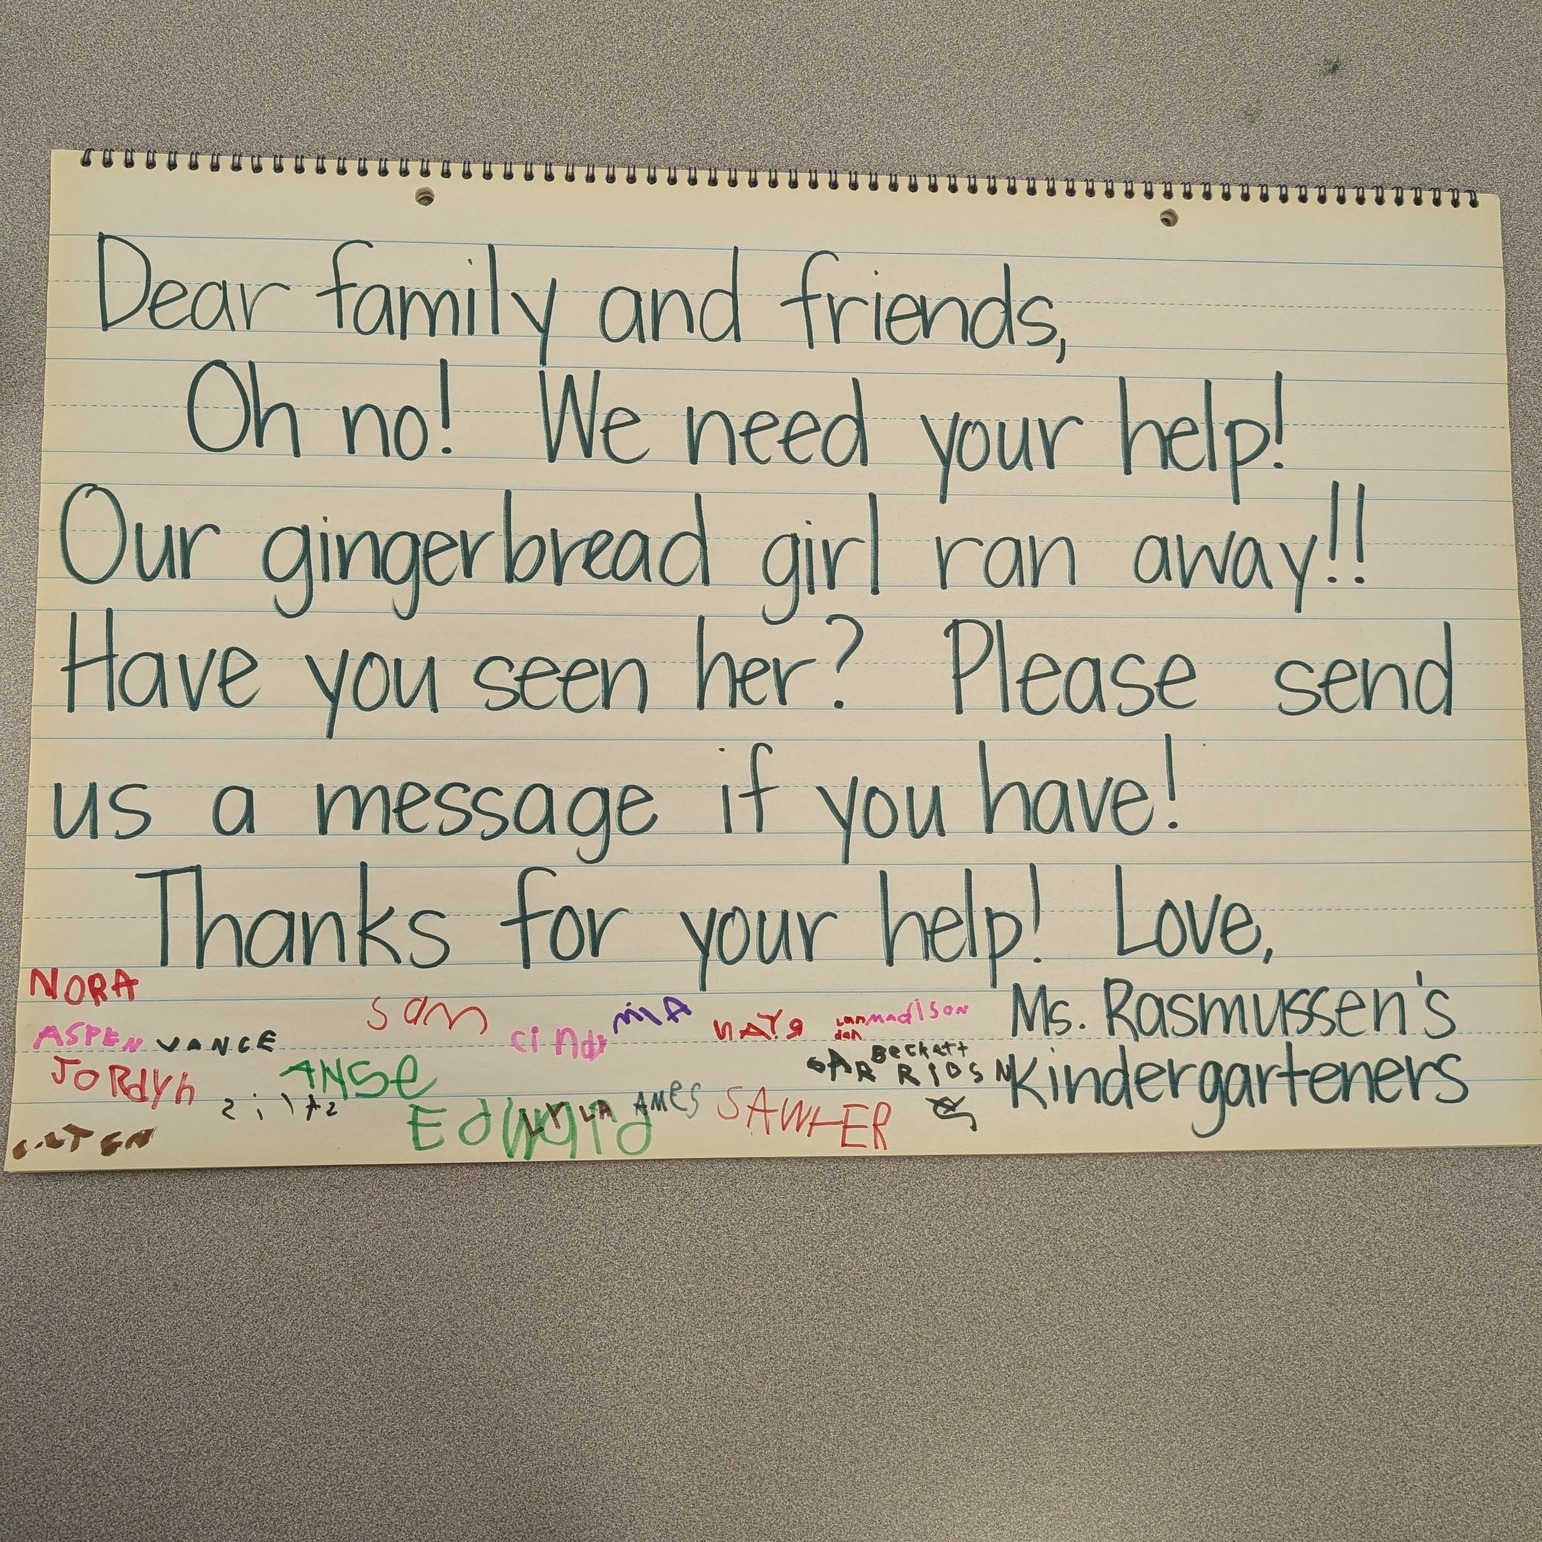 Dear family and friends,
Oh no! We need your help!
Our gingerbread girl ran away!!
Have you seen her? Please send
us a message if you have!
Thanks for your help! Love,
Ms. Rasmussen's
Kindergarteners
NORA
sam
miA
madison
ASPEN
VANCE
Jordyn
ANSe
Beckett
GARRISON
Edward
LYLA
AMes
SAWYER